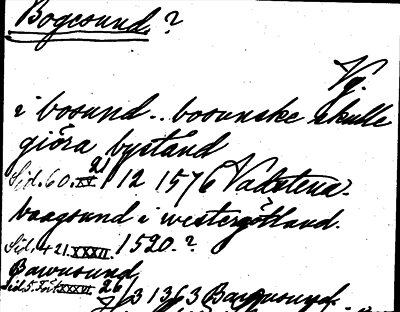 Bogesund. ?
Vg.
i bosund.. bosunske skulle
giöra bystånd
Sid. 60. XV. 21/12 1576 Vadstena.
baagsund i westergötland.
Sid. 421. XXXII. 1520. ?
Bawnsund
Sid. 5. XXXVI 26/3 1363 Bawnsund.